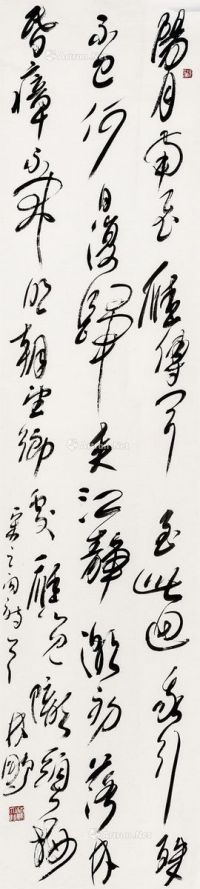 陽月南飛雁傳聞至此迴我行殊
未已何日復歸來江靜潮初落林
昏瘴不開明朝望鄉處應見隴頭梅
宋之問詩